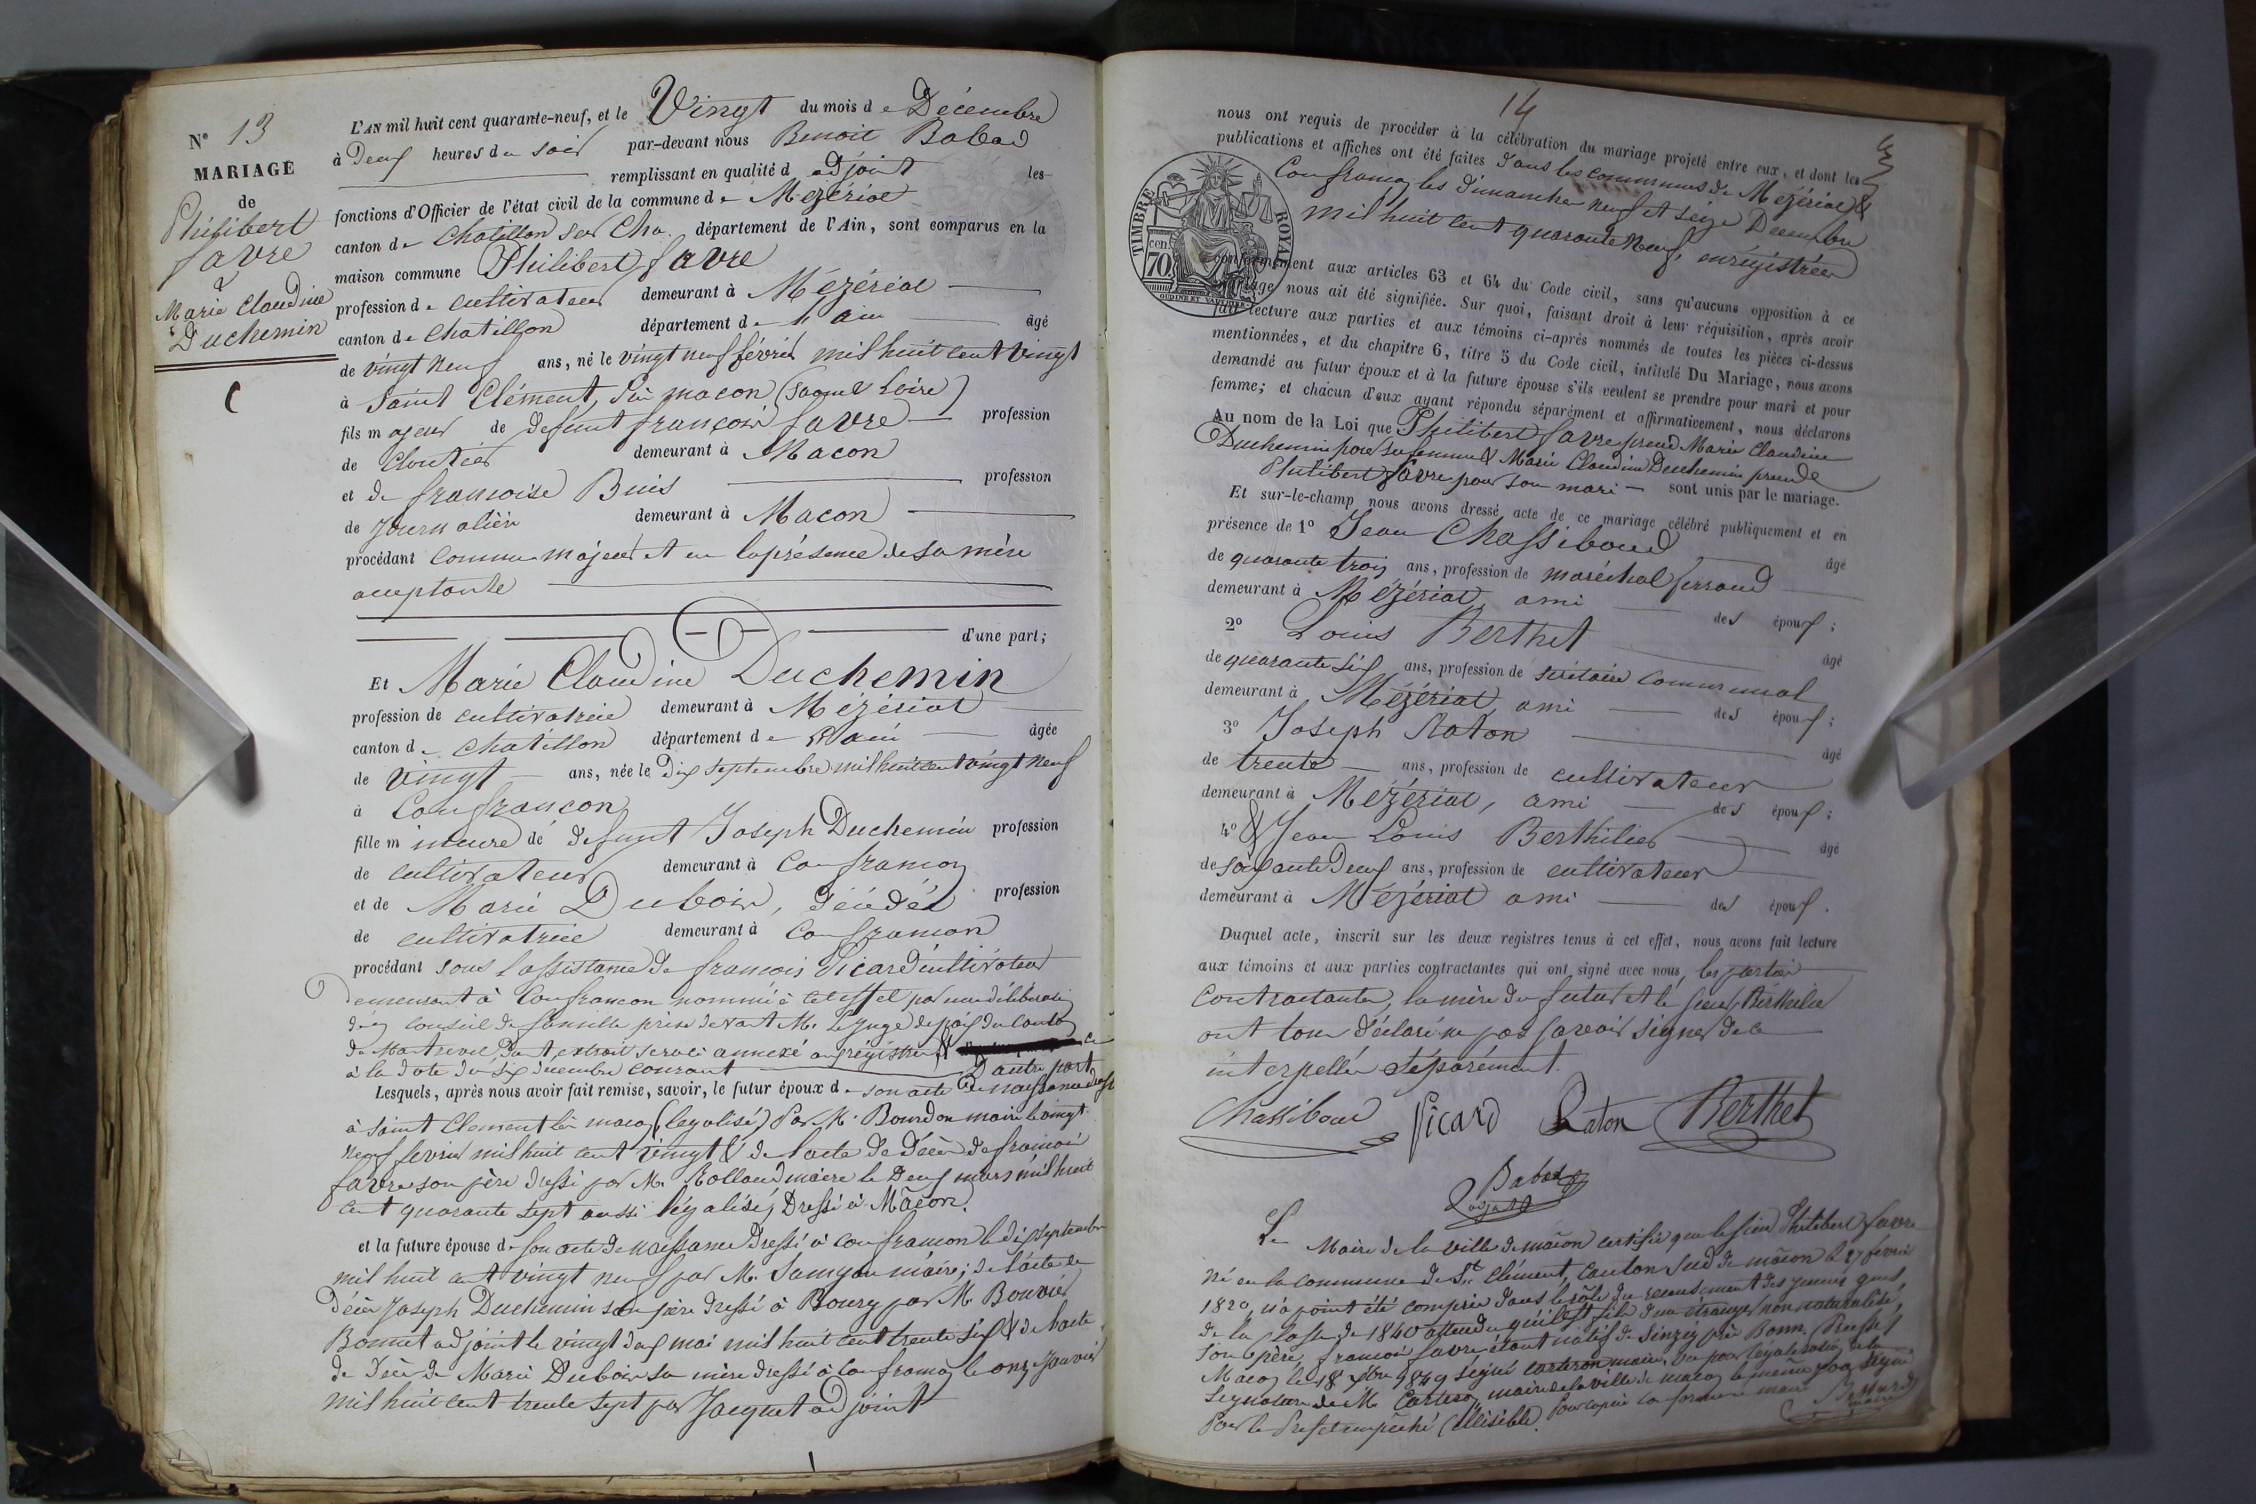 N° 13
MARIAGE
de
Philibert
favre
&
Marie Claudine
Duchemin
L'AN mil huit cent quarante-neuf, et le Vingt du mois de Décembre
à Deux heures du soir par-devant nous Benoit Babad
remplissant en qualité d'adjoint les
fonctions d'Officier de l'état civil de la commune de Mézériat
canton de Chatillon sur Cha. département de l'Ain, sont comparus en la
maison commune Philibert favre
profession de cultivateur demeurant à Mézériat
canton de Chatillon département de l'ain âgé
de vingt neuf ans, né le vingt neuf février mil huit cent vingt
à Saint Clément, lès macon (Saone & Loire)
fils majeur de defunt françois favre profession
de cloutier demeurant à Macon
et de francoise Buis profession
de Journalière demeurant à Macon
procédant comme majeur et en la présence de sa mère
acceptante
d'une part;
Et Marie Claudine Duchemin
profession de cultivatrice demeurant à Mézériat
canton de Chatillon département de l'ain âgée
de vingt ans, née le dix septembre mil huit cent vingt neuf
à Confrancon
fille mineure de defunt Joseph Duchemin profession
de cultivateur demeurant à Confrancon
et de Marie Dubois, décédés profession
de cultivatrice demeurant à Confrancon
procédant sous l'assistance de françois Picard cultivateur
demeurant à Confrancon nommé à cet effet par une délibération
du conseil de famille prise devant M. le juge de paix du canton
de Montrevel, dont extrait sera ci annexé au registre &
à la date du six decembre courant D'autre part
Lesquels, après nous avoir fait remise, savoir, le futur époux de son acte de naissance dressé
à saint Clement lès macon (legalisé) Par M. Bourdon maire le vingt
neuf fevrier mil huit cent vingt & de l'acte de décès de françois
favre son père dressé par M. Rolland maire le Deux mars mil huit
cent quarante sept aussi légalisé, Dressé à Mâcon.
et la future épouse de son acte de naissance dressé à confrancon le dix septembre
mil huit cent vingt neuf par M. maire; de l'acte de
décès Joseph Duchemin son père dressé à Bourg par M. Bouvier
Bonnet adjoint le vingt deux mai mil huit cent trente six & de l'acte
de décès de Marie Dubois sa mère dressé à Confrancon le onze Janvier
mil huit cent trente sept par Jacquet adjoint
14
nous ont requis de procéder à la célébration du mariage projeté entre eux, et dont les
publications et affiches ont été faites dans les communes de Mézériat &
Confrancon les dimanches neuf et seize Decembre
mil huit cent quarante neuf, enrégistrées
TIMBRE ROYAL
cen. 70
conformément aux articles 63 et 64 du Code civil, sans qu'aucune opposition à ce
mariage nous ait été signifiée. Sur quoi, faisant droit à leur réquisition, après avoir
fait lecture aux parties et aux témoins ci-après nommés de toutes les pièces ci-dessus
mentionnées, et du chapitre 6, titre 5 du Code civil, intitulé Du Mariage, nous avons
demandé au futur époux et à la future épouse s'ils veulent se prendre pour mari et pour
femme; et chacun d'eux ayant répondu séparément et affirmativement, nous déclarons
Au nom de la Loi que Philibert favre prend Marie Claudine
Duchemin pour sa femme & Marie Claudine Duchemin prend
Philibert favre pour son mari sont unis par le mariage.
Et sur-le-champ nous avons dressé acte de ce mariage célébré publiquement et en
présence de 1° Jean Chassiboud âgé
de quarante trois ans, profession de maréchal ferrand
demeurant à Mézériat, ami des époux;
2° Louis Berthet âgé
de quarante six ans, profession de secrétaire communal
demeurant à Mézériat, ami des époux;
3° Joseph Raton âgé
de trente ans, profession de cultivateur
demeurant à Mézériat, ami des époux;
4° & Jean Louis Berthilier âgé
de soixante deux ans, profession de cultivateur
demeurant à Mézériat ami des époux.
Duquel acte, inscrit sur les deux registres tenus à cet effet, nous avons fait lecture
aux témoins et aux parties contractantes qui ont signé avec nous, les parties
contractantes, la mère du futur et le sieur Berthilier
ont tous déclaré ne pas savoir signer de ce
interpellés séparément.
Chassiboud Picard Raton Berthet
Babad
adjoint
Le Maire de la ville de macon certifie que le sieur Philibert favre
né en la commune de St Clément, canton sud de mâcon le 27 février
1820, n'a point été compris dans le rôle du recensement des jeunes gens,
de la classe de 1840 attendu qu'il est fils d'un étranger non naturalisé,
son père, françois favre étant natif de Sinzig près Bonn (Prusse)
Macon le 18 7bre 1849 signé Carteron maire, vu pour légalisation de la
signature de M. Carteron maire de la ville de macon le même jour signé
Pour le Prefet empêché (illisible). Pour copie conforme le maire